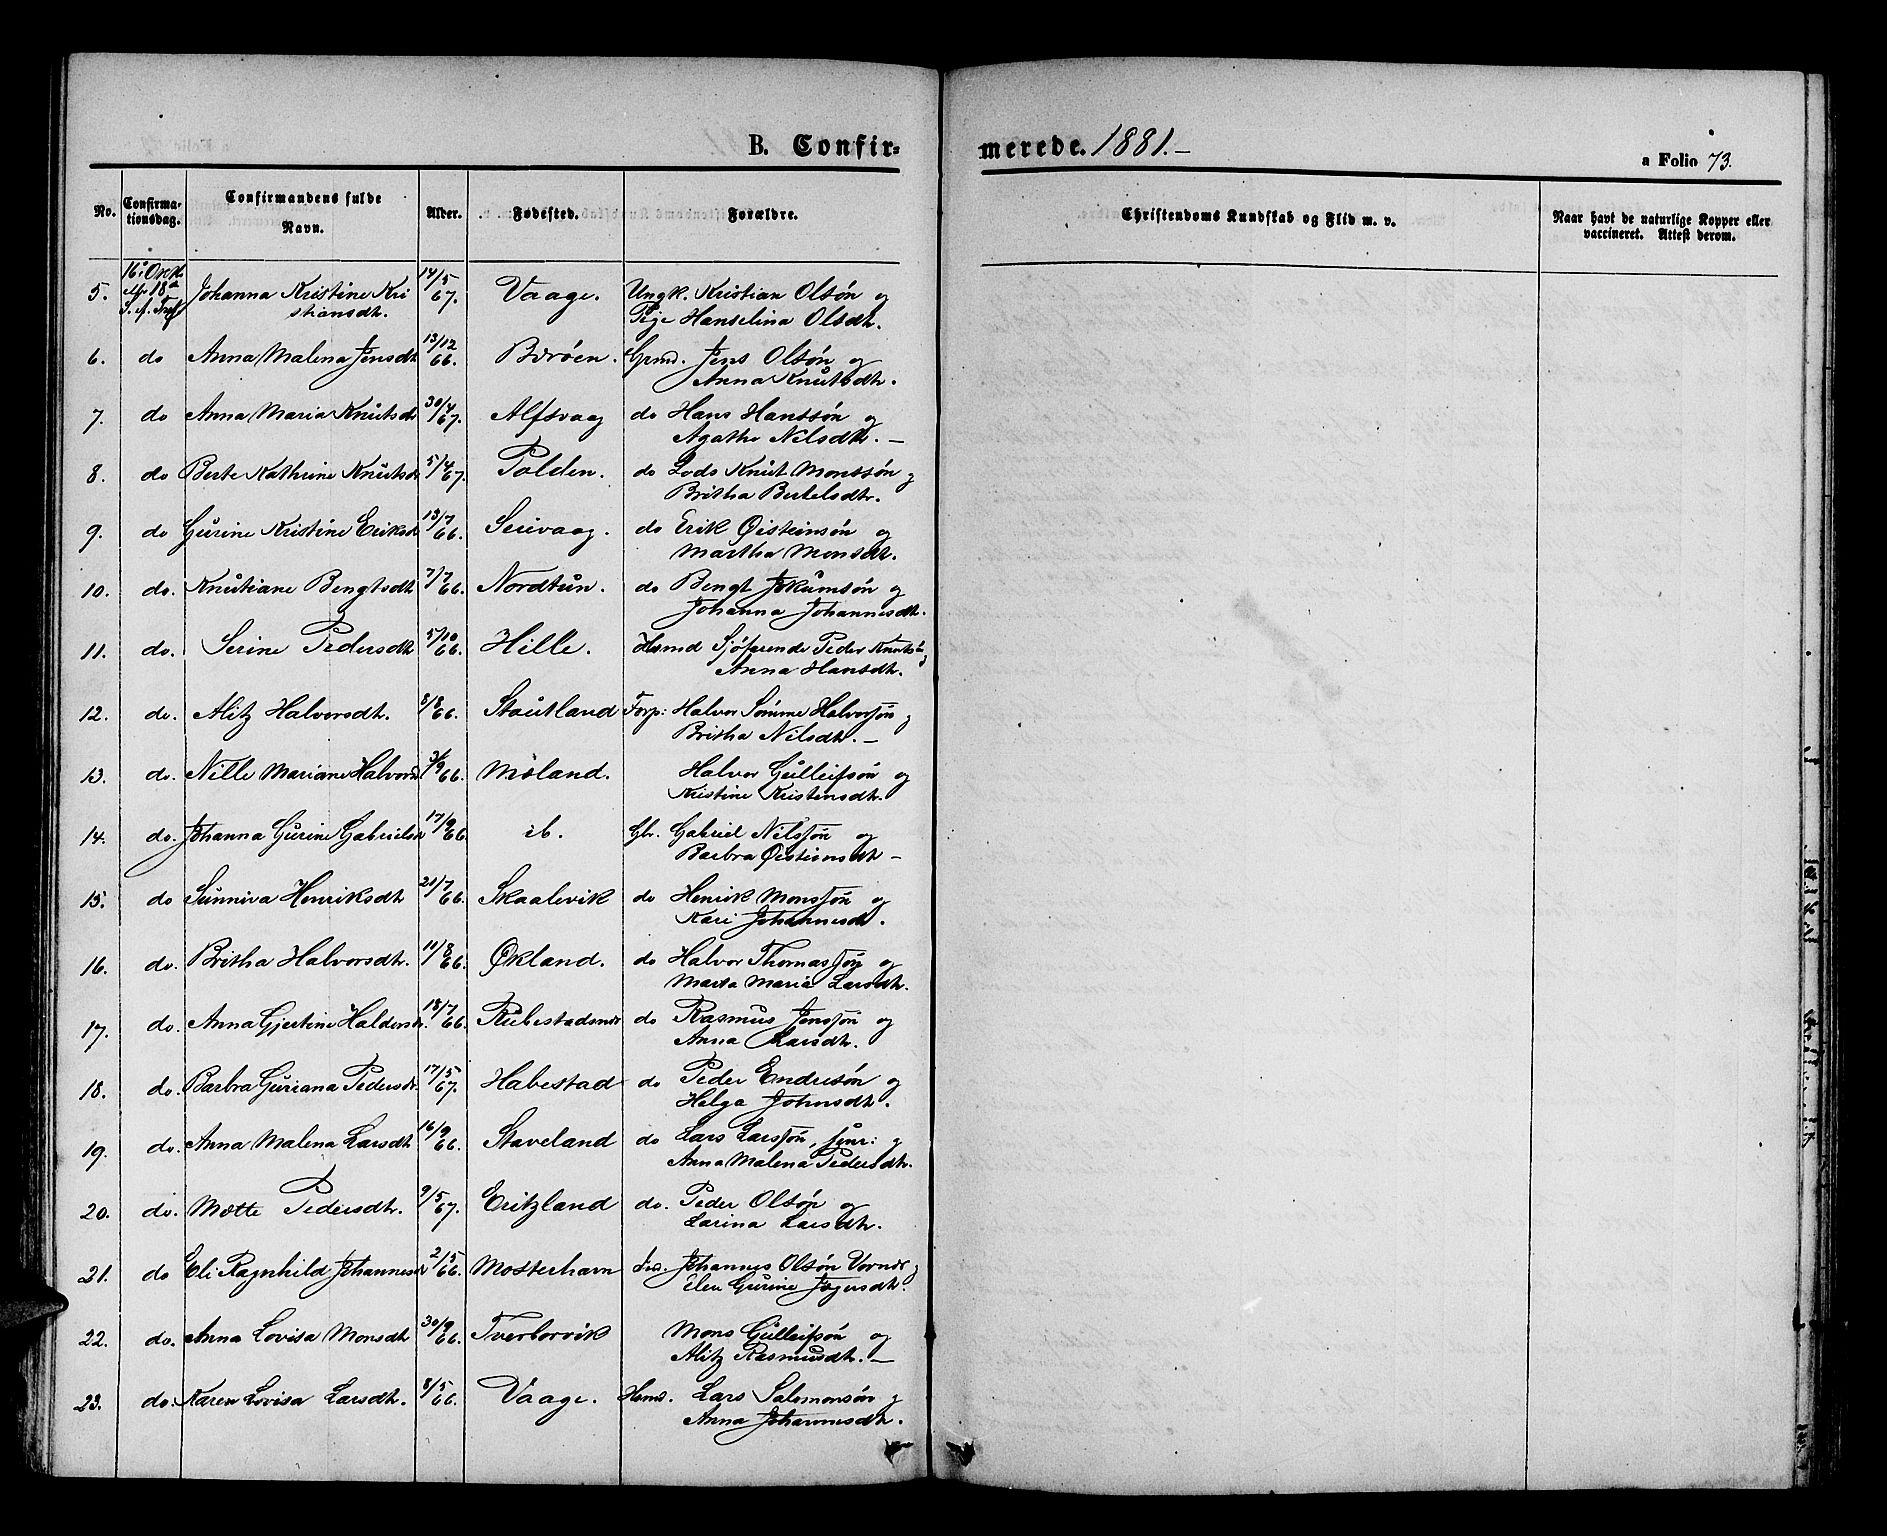 B. Confirmerede. 1881.-
a Folio 73.
No. Confirmationsdag. Confirmandens fulde Navn. Alder. Fødested. Forældre. Christendoms Kundskab og Flid m. v. Naar havt de naturlige Kopper eller vaccineret. Attest derom.
5. Johanna Kristine Kri 14/5 67. Vaage. Ungk. Kristian Olsøn og
stiansdt. Pige Hanselina Olsdt.
6. do Anna Malena Jensdt 13/12 66. Børøen. Grmd. Jens Olsøn og
Anna Knutsdt.
7. do Anna Maria Knutsdt 30/4 67. Alfsvaag do Hans Hanssøn og
Agathe Nilsdt. —
8. do Berte Kathrine Knutsdt 5/4 67. Polden. do Lods Knut Monssøn og
Britha Bertelsdtr.
9. do Gurine Kristine Eriksdt 13/7 66. Seivaag. do Erik Øisteinsøn og
Martha Monsdt.
10. do. Knutiane Bengtsdt 7/7 66. Nordtun. do Bengt Jokumsøn og
Johanna Johannesdt.
11. do. Serine Pedersdt 5/10 66. Hille. Husmd Sjøfarende Peder Knuts. og
Anna Hansdt.
12. do. Alitz Halvorsdt. 8/8 66. Stoutland Forp: Halvor Sømme Halvorsøn og
Britha Nilsdt. —
13. do. Nille Mariane Halvorsd 3/9 66. Møland. Halvor Gulleifsøn og
Kristine Kristensdt.
14. do. Johanna Gurine Gabrielsdt 17/9 66. ib. Gbr. Gabriel Nilssøn og
Barbra Øisteinsdt —
15. do Sunniva Henriksdt 21/7 66. Skaalevik do Henrik Monssøn og
Kari Johannesdt.
16. do. Britha Halvorsdt. 10/8 66. Økland. do Halvor Thomassøn og
Marta Maria Larsdt.
17. do. Anna Gjertine Haldorsdt. 18/7 66. Rubbestadsnes do Rasmus Jenssøn og
Anna Larsdt.
18. do. Barbra Guriana Pedersdt 17/5 67. Habestad do Peder Endresøn og
Helga Johnsdt.
19. do. Anna Malena Larsdt 16/9 66. Staveland do Lars Larssøn, junr: og
Anna Malena Pedersdt.
20. do. Mette Pedersdt. 9/5 67. Eritzland do. Peder Olsøn og
Larina Larsdt.
21. do Eli Ragnhild Johannesdt 2/5 66. Mosterhavn Johannes Olsøn og
Elen Gurine Jogersdt.
22. do. Anna Lovisa Monsdt 30/9 66. Tverborvik Mons Gulleifsøn og
Alitz Rasmusdt. —
23. do. Karen Lovisa Larsdt. 8/5 66. Vaage. Husmd. Lars Salomonsøn og
Anna Johannesdt.